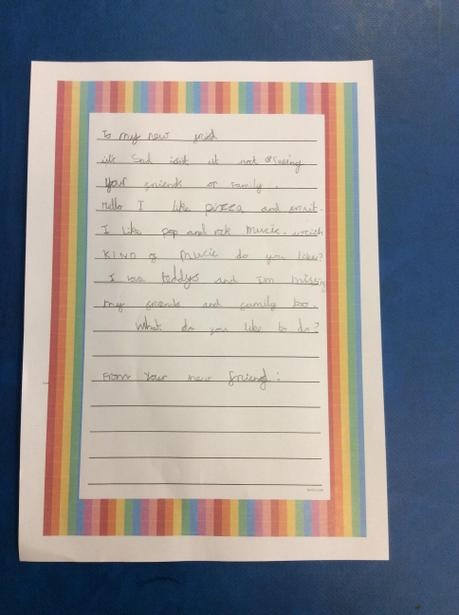 To my new frind
its Sad isnt it not Seeing
Your friends or family.
Hello I like pizza and
I like pop and rok music. wich
KIND of music do you like?
I love teddys and Im missing
my friends and family too.
What do you like to do?
From Your new friend: